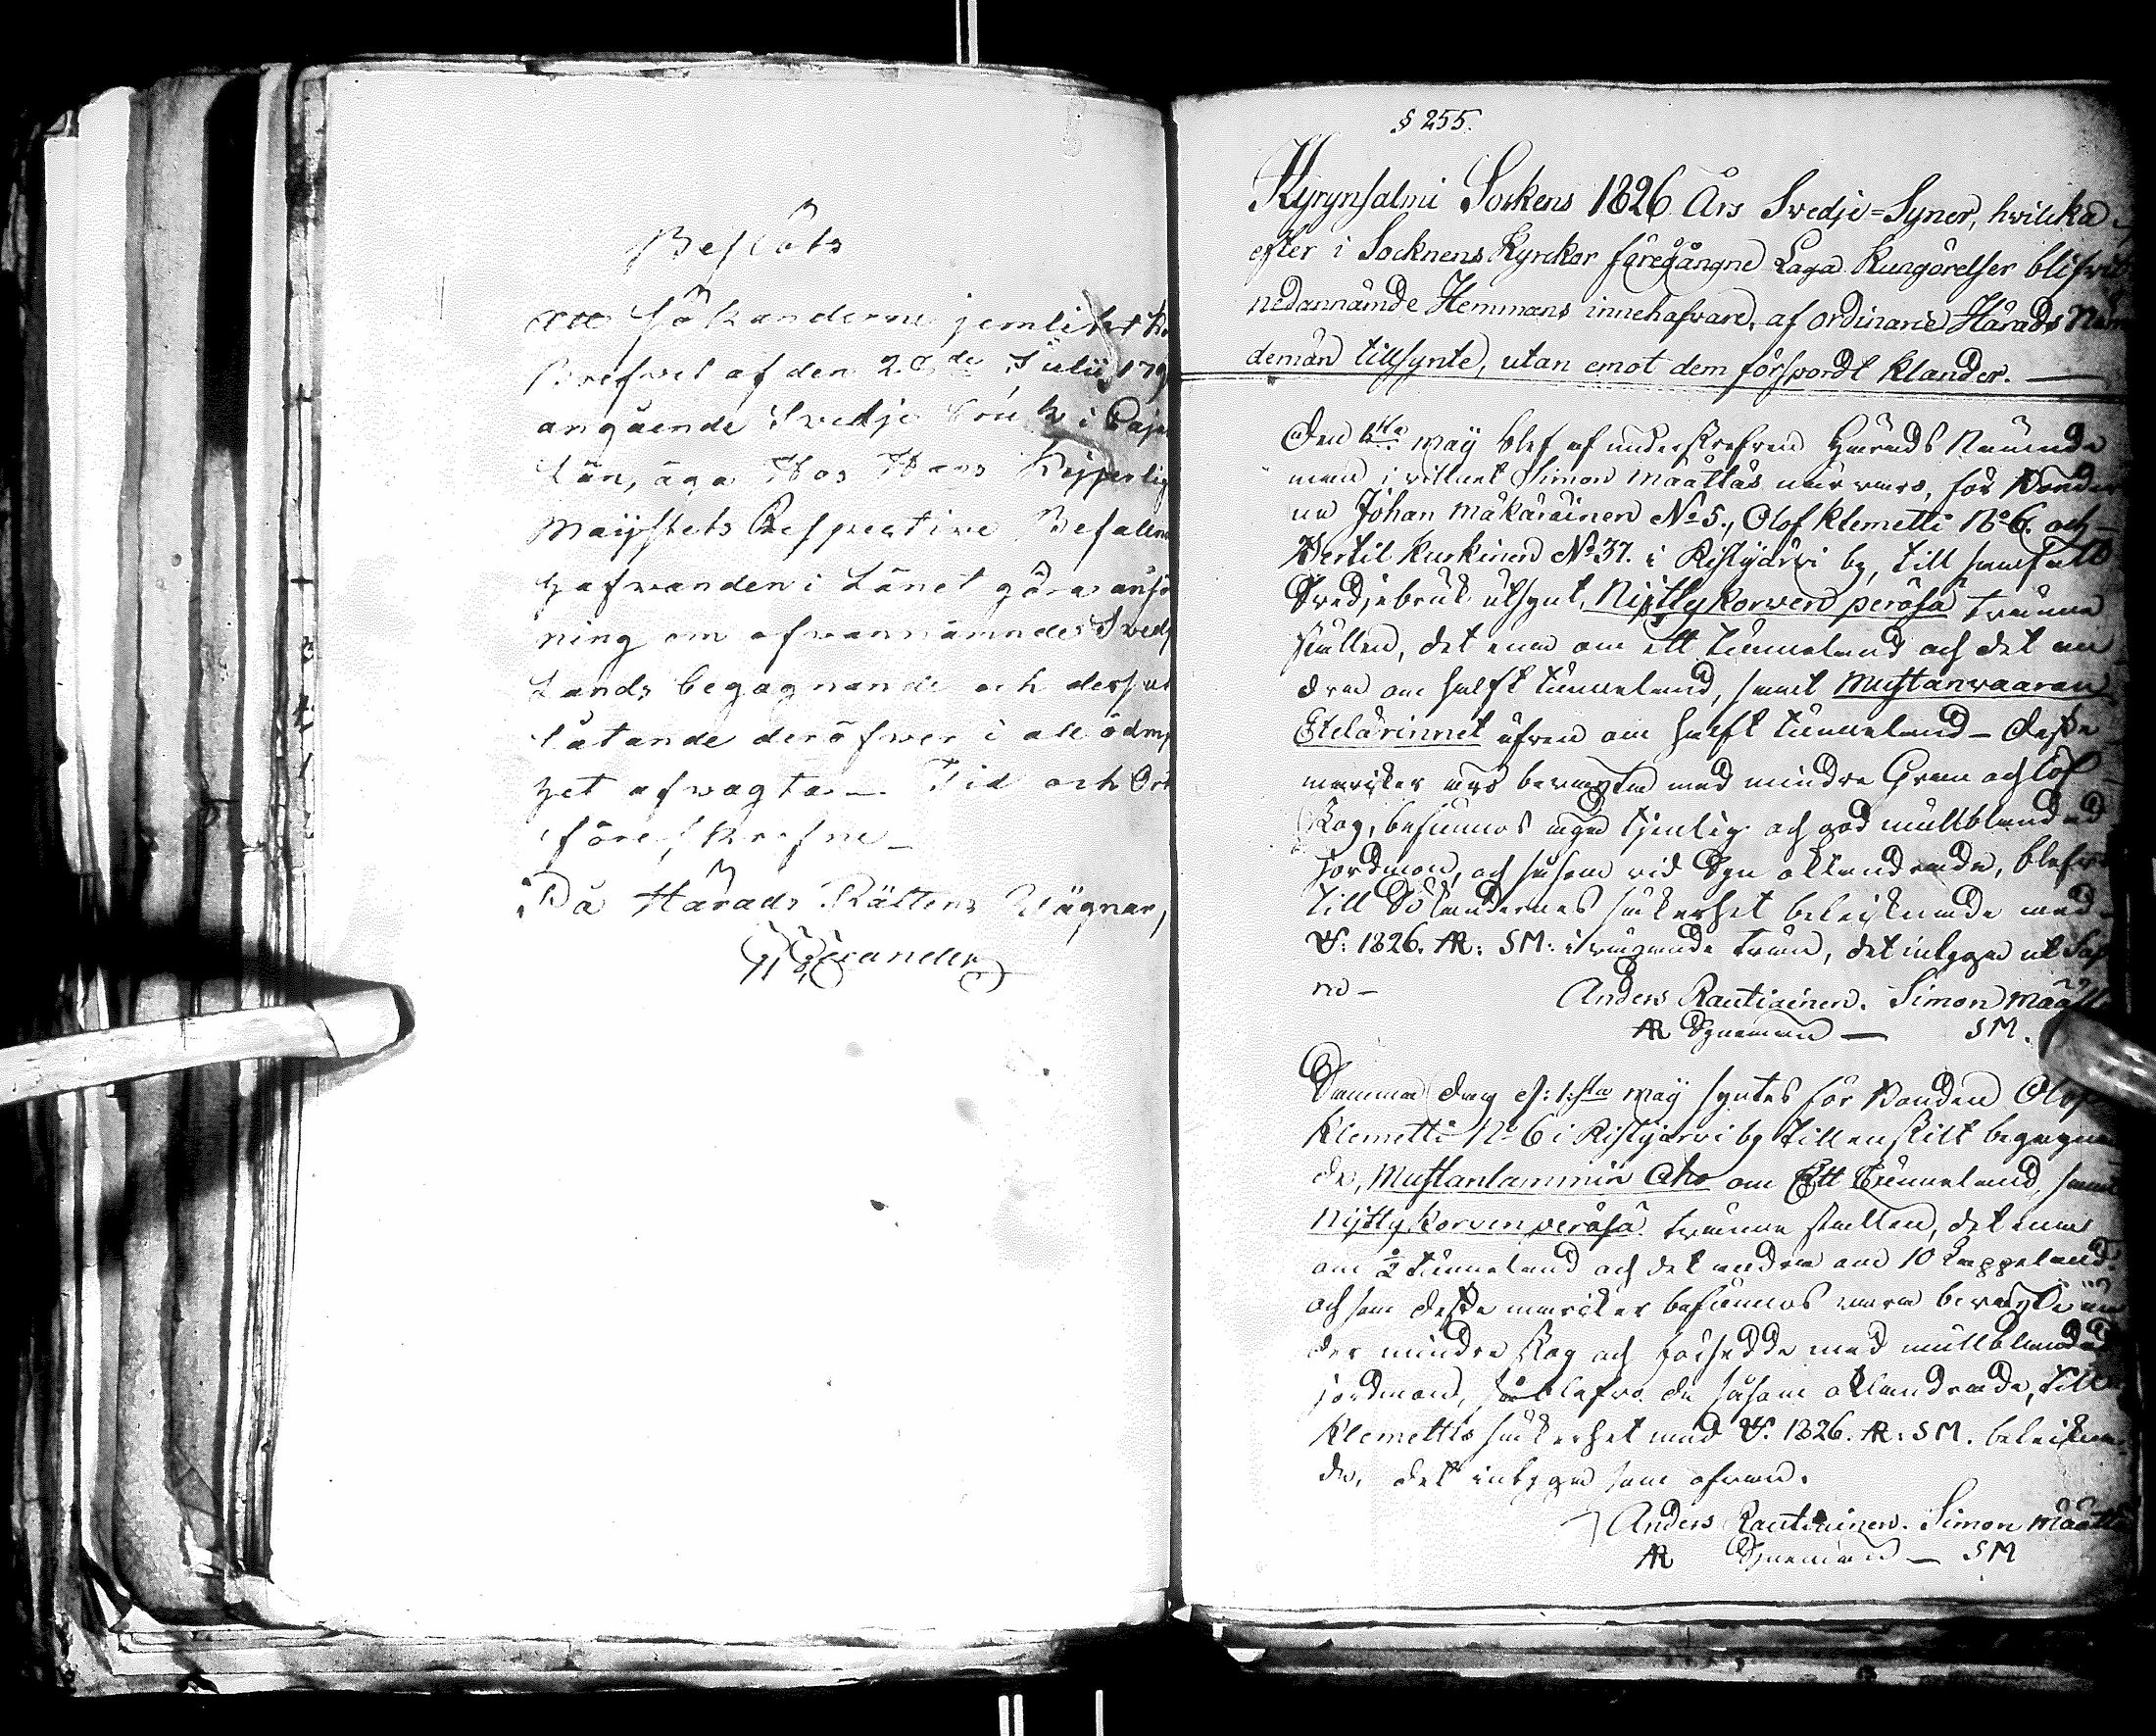 Beslöts
att Sökanderne jemlikt K.
Brefvet af den 28de Julii 179
angående Svedje bruk i Caja
Län, äga Hos Hans Kejserlig
Maijstets Respective Befalln
hafwanden i Länet göra ansö
ning om ofwannämndes Swedj
Lands begagnande och dess ut
låtande deröfwer i all ödmj
het afwagta. Tid och Ort
föreskrefne
På Härads Rättens Wägnar,
§ 255.
Kyrynsalmi Sockens 1826 Års Svedje-Syner, hvilcka
efter i Socknens Kyrckor föregångne Laga Kungörelser blifvit
nedannämde Hemmans innehafvare, af ordinarie Härads Näm
demän tillsynte, utan emot dem förspordt klander.
Den 1sta Maij blef af underskrefven Härads Nämnde
man i vittnet Simon Määttäs närvaro, för Bönder
na Johan Mäkäräinen No 5., Olof Klemetti No 6. och
Bertil Kurkinen No 37. i Ristijärvi by, till samfält
Svedjebruk utsynt, Nijttykorwen peräsä tvänne
ställen, det ena om ett tunneland och det an
dra om halft tunneland, samt Mustanvaaran
Etelärinnet äfven om halft tunneland - Desse
marcker äro bevexta med mindre Gran och löf
skog, befunnos ega tjenlig och god mullblandad
jordmon, och såsom vid Syn oklandrade, blefvo
till Sökandernes säkerhet beteiknade med
V: 1826. AR: SM: i vägande trän, det intygar ut Sup
ra -
Anders Rautiainen. Simon Määttä
AR Syneman - SM.
Samma dag d: 1sta Maij syntes för Bonden Olof
Klemetti No 6 i Ristijärvi by till enskilt begagnan
de, Mustanlammin Aho om Ett Tunneland, samt
Nijttykorven peräsä tvänne ställen, det ena
om 1/2 tunneland och det andra om 10 kappeland.
och som desse marcker befunnos vara bevexte un
der mindre skog och försedde med mullblandad
jordmon, så blefvo de såsom oklandrade, till
Klemettis säkerhet med V. 1826. AR: SM. beteikna
de, det intygar som ofvan.
Anders Rautiainen. Simon Määttä
AR Syneman - SM